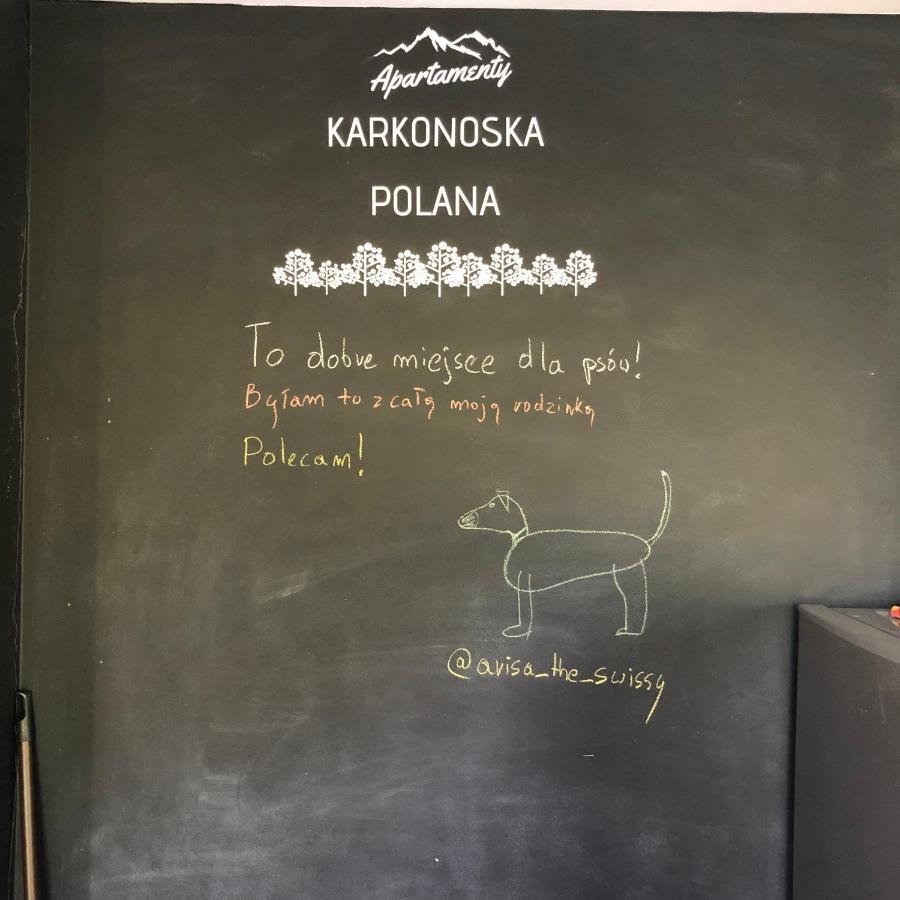 Apartamenty
KARKONOSKA
POLANA
To dobre miejsce dla psów!
Byłam tu z całą moją rodzinką
Polecam!
@avisa_the_swissy